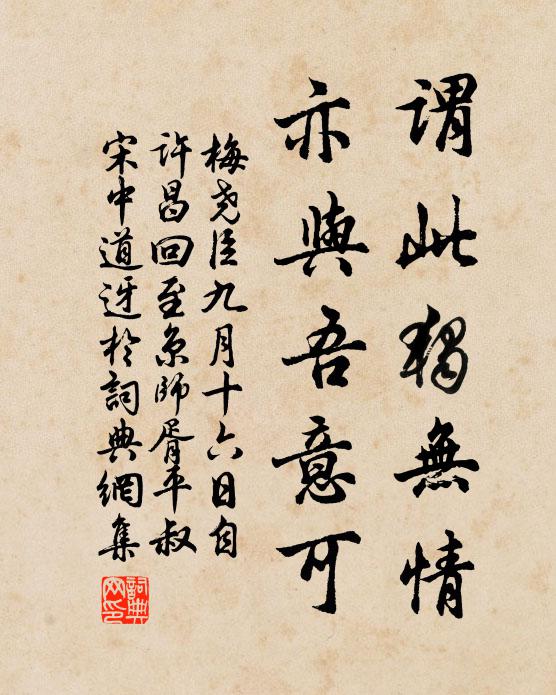 謂此獨無情
亦與吾意可
梅堯臣九月十六日自
許昌回至京師胥平叔
宋中道迓於詞典網集
詞典
网印